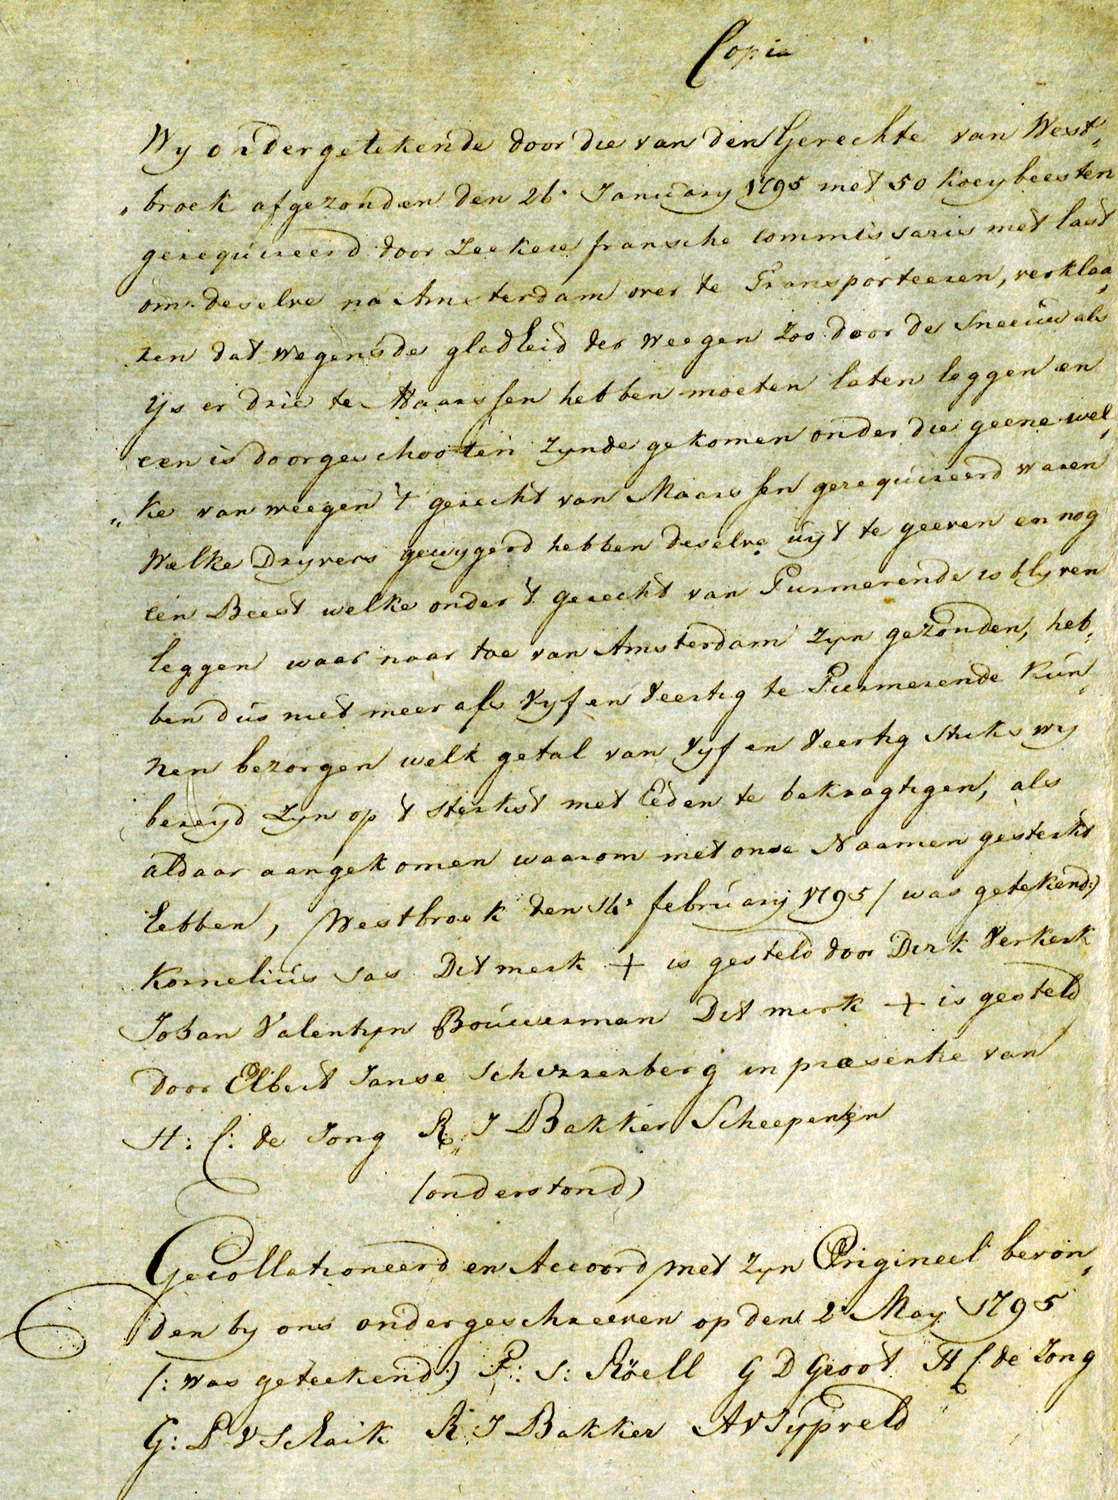 Copia
Wy ondergetekende door die van den Gerechte van West„
„broek afgezonden den 26 January 1795 met 50 koeybeesten
gerequireerd door Zeekere fransche commissaris met last
om deselve na Amsterdam over te Transporteeren, verklaa„
ren dat wegens de gladheid der weegen zoo door de Sneeuw als
ys er drie te Maarssen hebben moeten laten leggen en
een is doorgeschooten zynde gekomen onder die geene wel„
„ke van weegen 't gerecht van Maarssen gerequireerd waren
Welke Dryvers gewygerd hebben deselve uyt te geeven en nog
één Beest welke onder 't gerecht van Purmerende is blyven
leggen waar naar toe van Amsterdam zyn gezonden, heb„
ben dus niet meer als Vyf en Veertig te Purmerende kun„
nen bezorgen welk getal van Vyf en Veertig stuks wy
bereyd Zyn op 't sterkst met Eeden te bekragtigen, als
aldaar aangekomen waarom met onse Naamen gesterkt
hebben, Westbroek den februarij 1795 / was getekend:)
Kornelius Sas Dit merk + is gesteld door Dirk Verkerk
Johan Valentyn Bouwerman Dit merk + is gesteld
door Elbert Janse Schurrenberg in præsentie van
H: C: de Jong R„ J Bakker Scheepenen
(onderstond)
Gecollationeerd en Accoord met zyn Origineel bevon„
den by ons ondergeschreeven op den 2 May 1795
(: was geteekend:) P: S: Röell G D Groot H C de Jong
G: D V Schaik R J Bakker A V Sypveld